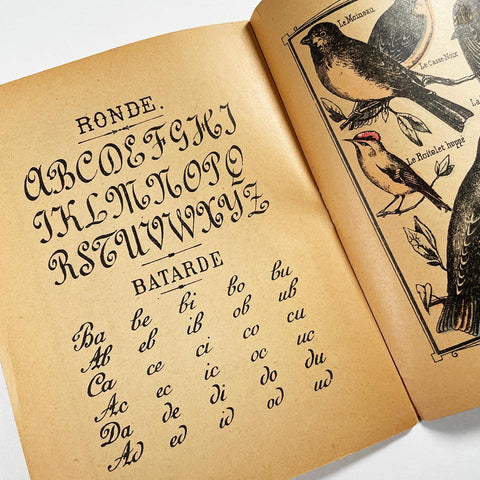 RONDE.
ABCDEFGHI
JKLMNOPQ
RSTUVWXYZ
BATARDE
Ba be bi bo bu
Ab eb ib ob ub
Ca ce ci co cu
Ac ec ic oc uc
Da de di do du
Ad ed id od ud
Le Moineau
Le Casse Noix
La
Le Roitelet huppe